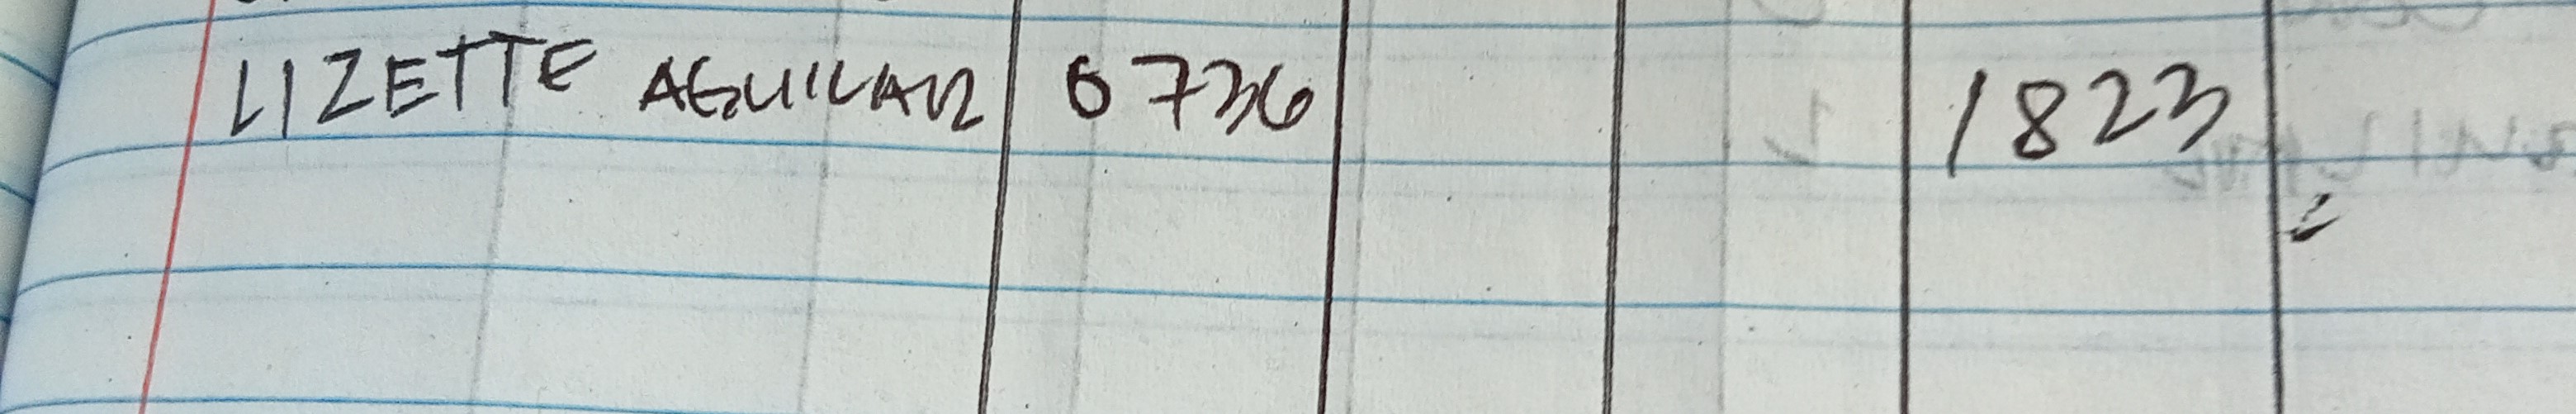 LIZETTE AGUILAR 0736 1823